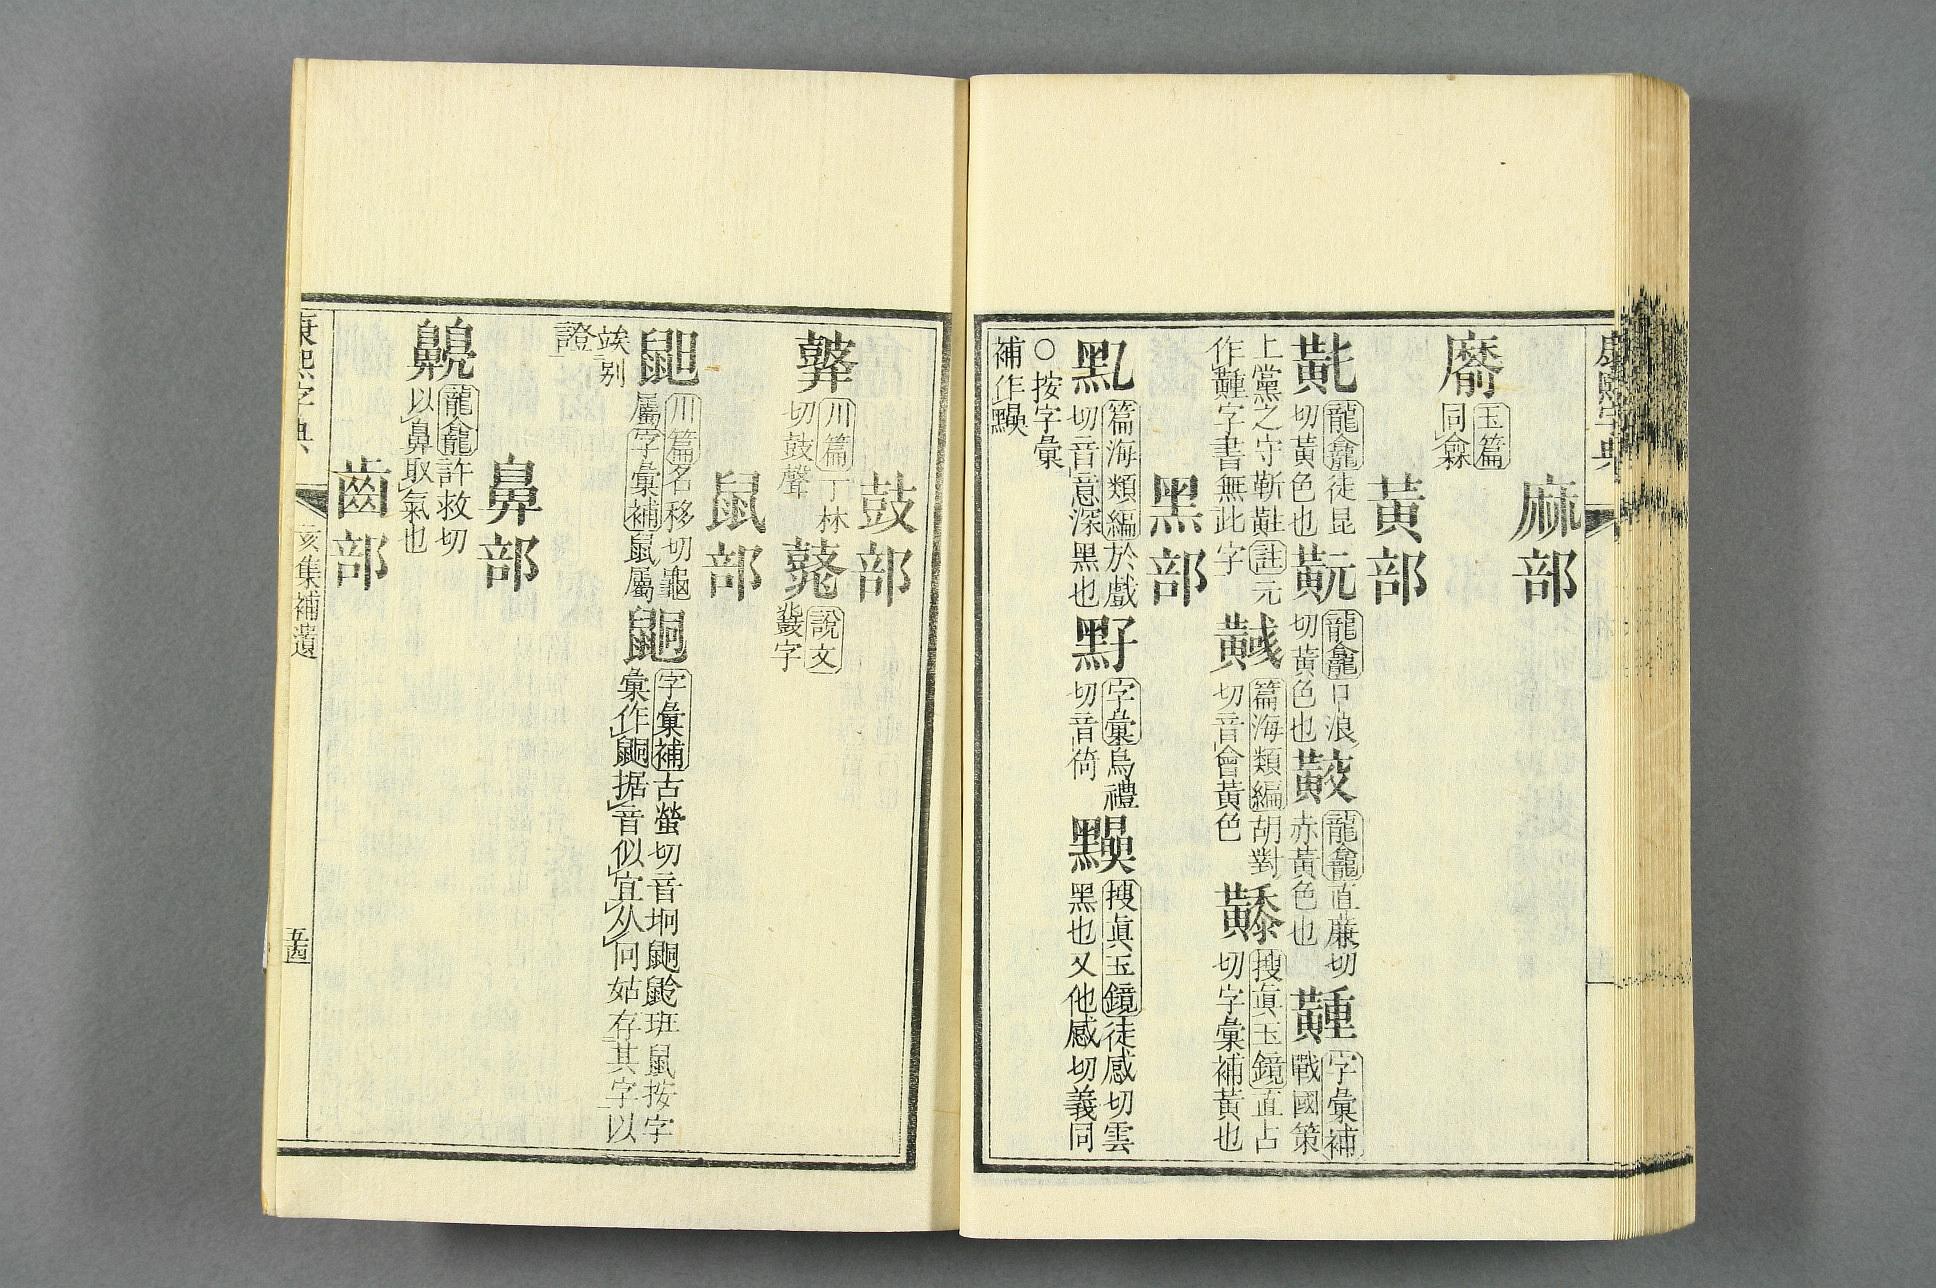 康熙字典
麻部
玉篇
同
黃部
龍龕徒昆
切黃色也
龍龕口浪
切黃色也
龍龕直廉切
赤黃色也
字彙補
戰國策
上黨之守靳黈註元
作𪏽字書無此字
篇海類編胡對
切音會黃色
搜真玉鏡直占
切字彙補黃也
黑部
篇海類編於戲
切音意深黑也
字彙烏禮
切音倚
搜真玉鏡徒感切雲
黑也又他感切義同
○按字彙
補作
鼓部
川篇丁林
切鼓聲
說文
鼖字
鼠部
川篇名移切龜
屬字彙補鼠屬
字彙補古螢切音坰鼮班鼠按字
彙作鼮据音似宜从冋姑存其字以
竢別
證
鼻部
龍龕許救切
以鼻取氣也
齒部
康熙字典
亥集補遺
五四